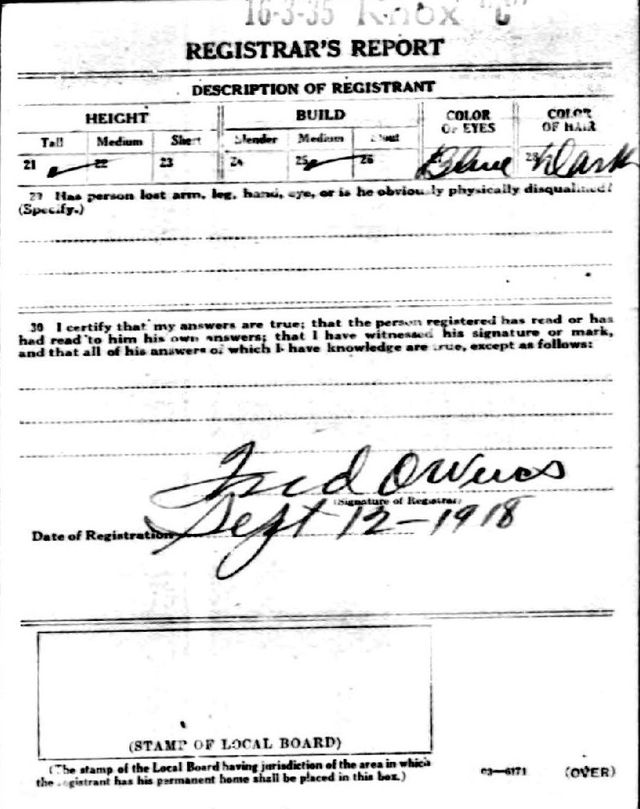 16-3-35 Knox "C"
REGISTRAR'S REPORT
DESCRIPTION OF REGISTRANT
HEIGHT BUILD COLOR OF EYES COLOR OF HAIR
Tall Medium Short Slender Medium Stout
21 22 23 24 25 26 Blue 28 Dark
29 Has person lost arm, leg, hand, eye, or is he obviously physically disqualified?
(Specify.)
30 I certify that my answers are true; that the person registered has read or has
had read to him his own answers; that I have witnessed his signature or mark,
and that all of his answers of which I have knowledge are true, except as follows:
Fred Owens
(Signature of Registrar)
Date of Registration Sept 12-1918
(STAMP OF LOCAL BOARD)
(The stamp of the Local Board having jurisdiction of the area in which
the registrant has his permanent home shall be placed in this box.)
03—6171 (OVER)